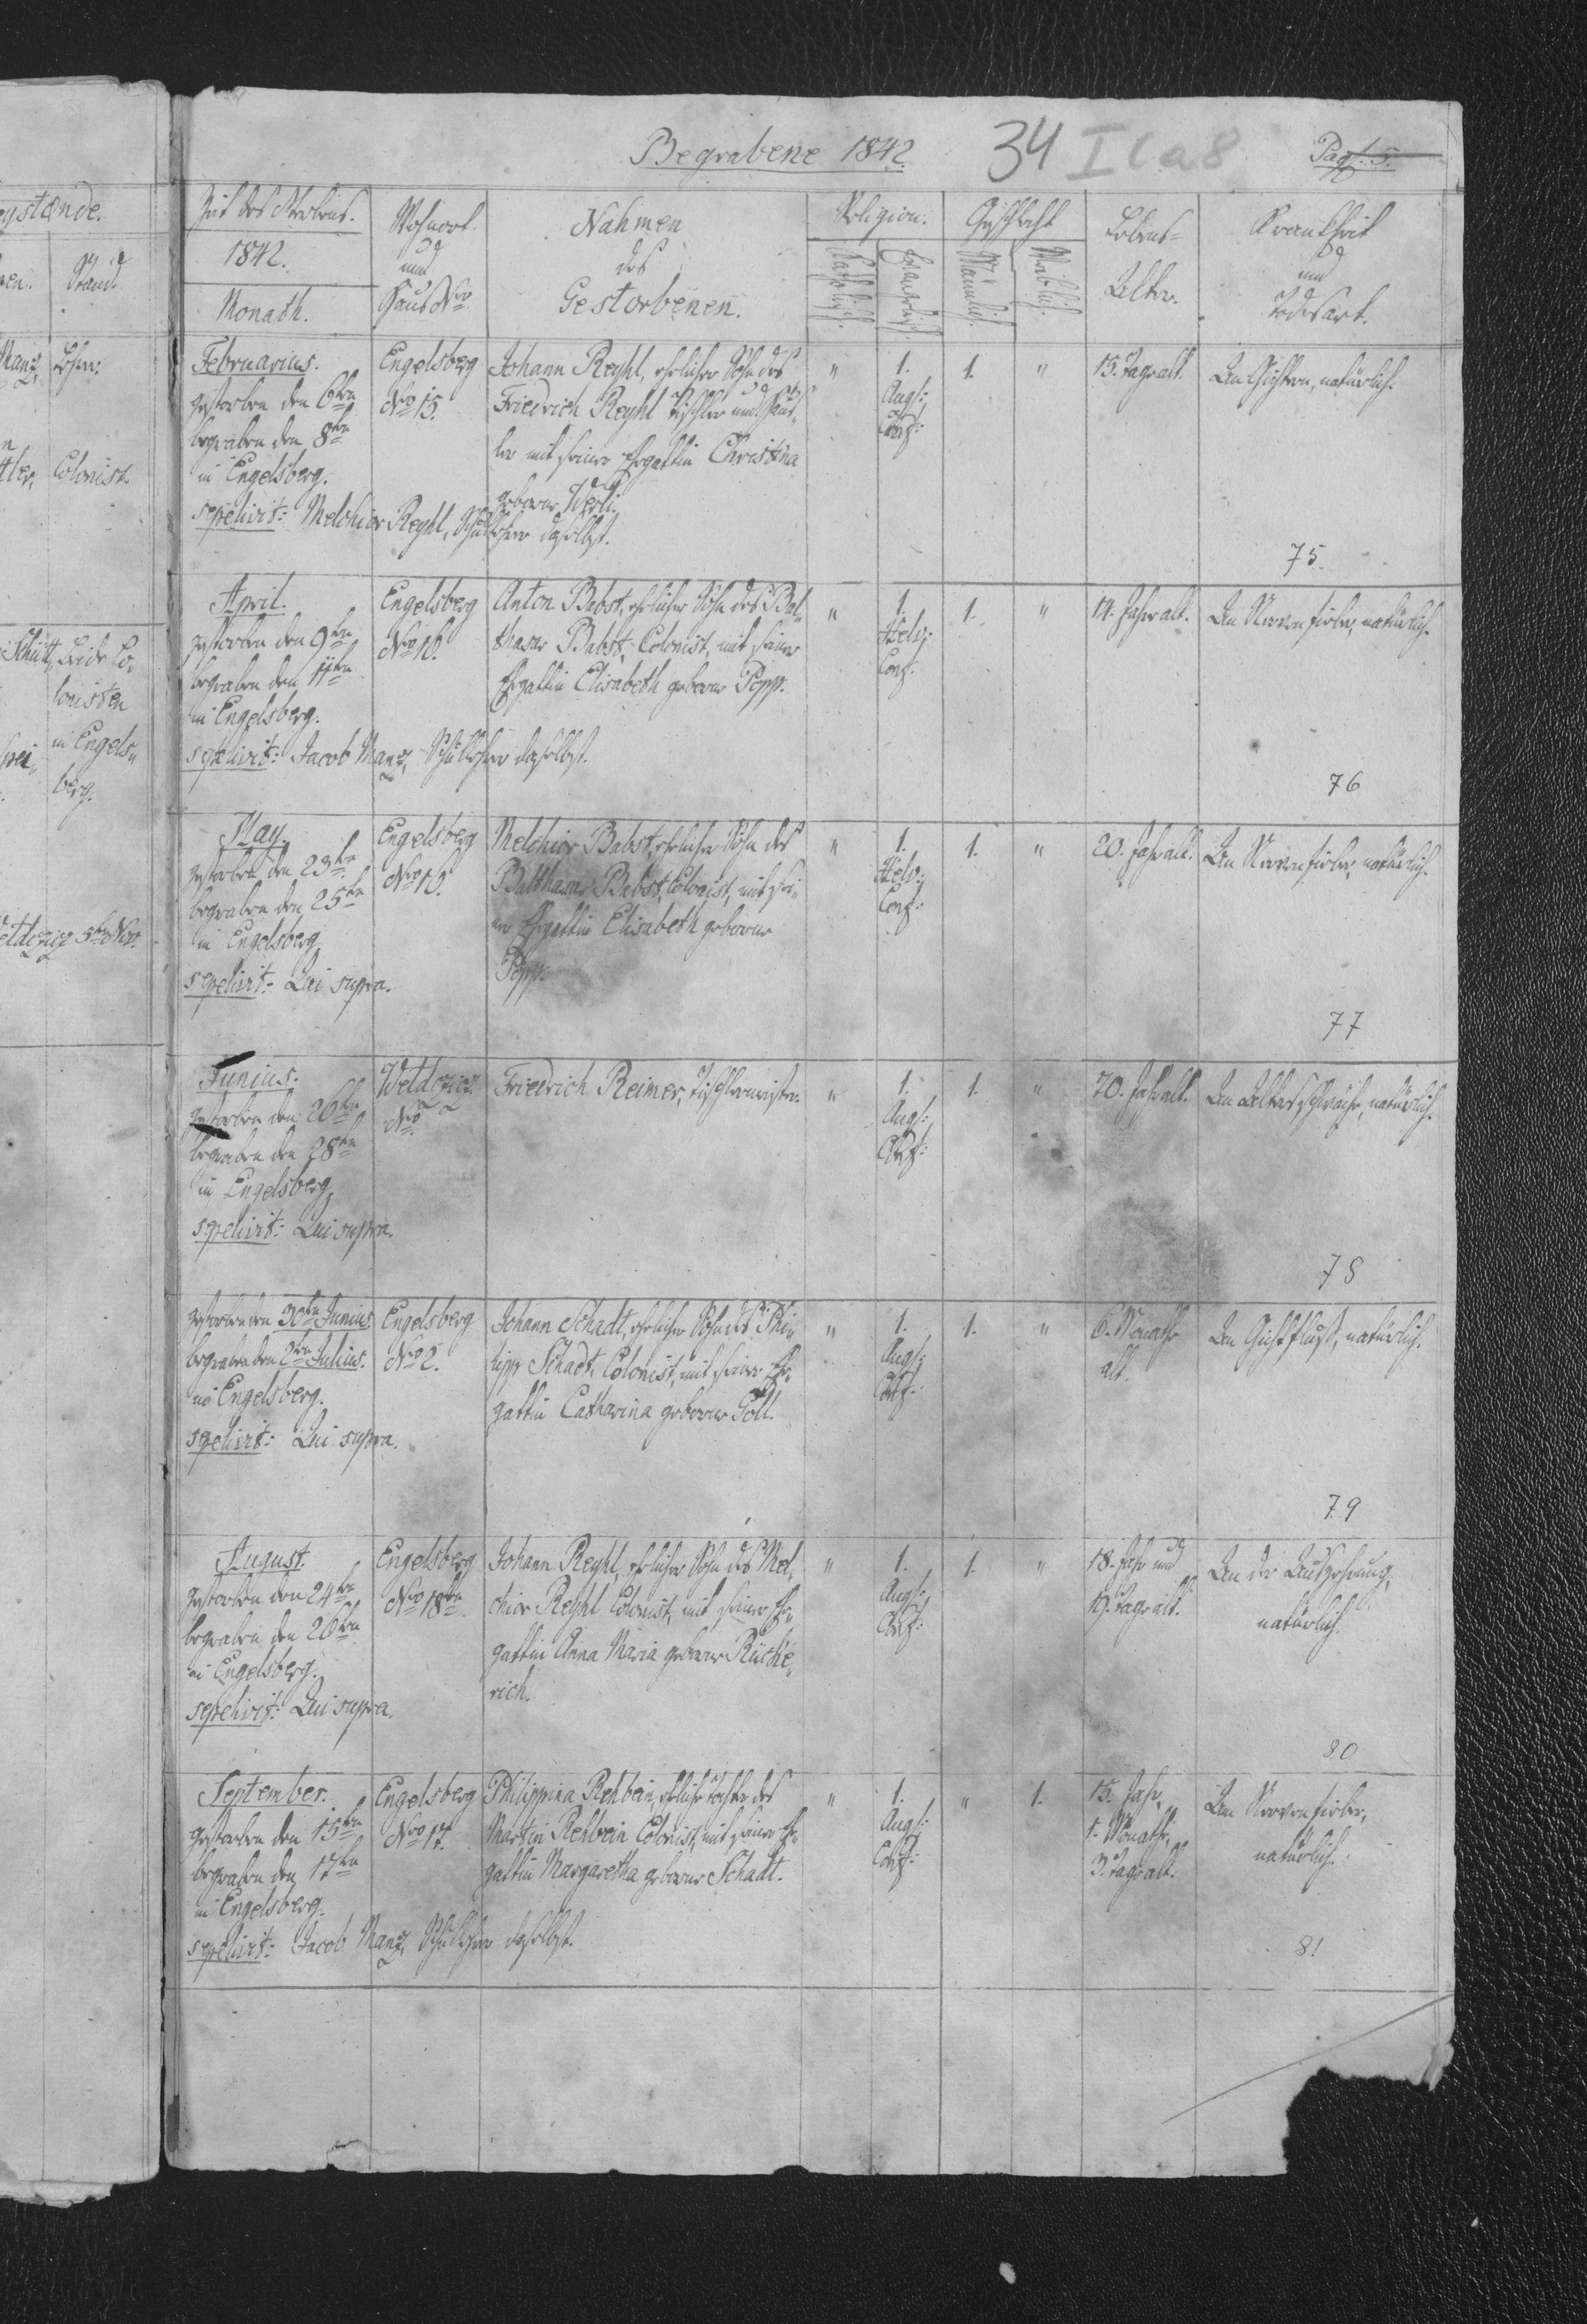 Begrabene 1842.
34 I C a 8
Pag. 5.
Zeit des Sterbens.
1842.
Monath.
Wohnort
und
Haus Nro
Nahmen
des
Gestorbenen.
Religion.
Katholisch.
Geschlecht
Männlich.
Weiblich.
Lebens-
Alter.
Krankheit
und
Todesart.
Februarius.
gestorben den 6ten
begraben den 8ten
in Engelsberg.
sepelivit: Melchior Reyhl, Schullehrer daselbst.
Engelsberg
Nro 15.
Johann Reyhl, ehelicher Sohn des
Friedrich Reyhl Tischler und Häus-
ler mit seiner Ehegattin Christina
geborne Werli.
"
1.
Augs:
Conf:
1.
"
15. Tage alt.
An Gichtern, natürlich.
75.
April.
gestorben den 9ten
begraben den 11ten
in Engelsberg.
sepelivit: Jacob Manz, Schullehrer daselbst.
Engelsberg
Nro 16.
Anton Babst, ehelicher Sohn des Bal-
thasar Babst, Colonist, mit seiner
Ehegattin Elisabeth geborne Popp.
"
1.
Helv:
Conf:
1.
"
14. Jahre alt.
An Nervenfieber, natürlich.
76
May.
gestorben den 23ten
begraben den 25ten
in Engelsberg
sepelivit: Qui supra.
Engelsberg
Nro 16.
Melchior Babst, ehelicher Sohn des
Balthasar Babst, Colonist, mit sei-
ner Ehegattin Elisabeth geborne
Popp.
"
1.
Helv:
Conf:
1.
"
20. Jahr alt.
An Nervenfieber, natürlich.
77
Junius.
gestorben den 26ten
begraben den 28ten
in Engelsberg
sepelivit: Qui supra.
Weldczicz
Nro
Friedrich Reimer, Tischlermeister.
"
1.
Augs:
Conf:
1.
"
70. Jahr alt.
An Altersschwäche, natürlich.
78
gestorben den 30ten Junius
begraben den 2ten Julius.
in Engelsberg.
sepelivit: Qui supra.
Engelsberg
Nro 2.
Johann Schadt, ehelicher Sohn des Phi-
lipp Schadt, Colonist, mit seiner Ehe-
gattin Catharina geborne Göll.
"
1.
Augs:
Conf:
1.
"
6. Monathe
alt.
An Gichtfluß, natürlich.
79
August.
gestorben den 24ten
begraben den 26ten
in Engelsberg.
sepelivit: Qui supra.
Engelsberg
Nro 18ten
Johann Reyhl, ehelicher Sohn des Mel-
chior Reyhl Colonist, mit seiner Ehe-
gattin Anna Maria geborne Rüche-
rich.
"
1.
Augs:
Conf:
1.
"
18. Jahr und
19. Tage alt.
An der Auszehrung,
natürlich.
80
September.
gestorben den 15ten
begraben den 17ten
in Engelsberg.
sepelivit: Jacob Manz, Schullehrer daselbst.
Engelsberg
Nro 17.
Philippina Rehbein, eheliche Tochter des
Martin Rehbein Colonist, mit seiner Ehe-
gattin Margaretha geborne Schadt.
"
1.
Augs:
Conf:
"
1.
15. Jahr,
1. Monath,
3. Tage alt.
Am Nervenfieber,
natürlich.
81